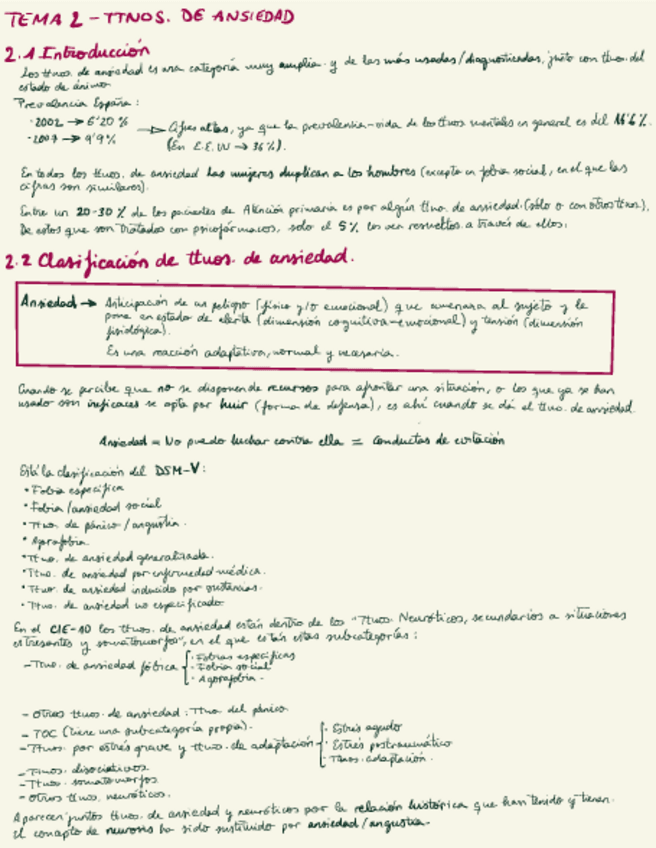 TEMA 2 - TTNOS. DE ANSIEDAD
2.1 Introducción
Los ttnos. de ansiedad es una categoría muy amplia y de las más usadas/diagnosticadas, junto con ttno. del
estado de ánimo
Prevalencia España:
· 2002 → 6'20 %
→ Cifras altas, ya que la prevalencia-vida de los ttnos mentales en general es del
· 2007 → 9'9%
(En E.E.U.U → 36%).
En todos los ttnos. de ansiedad las mujeres duplican a los hombres (excepto en fobia social, en el que las
cifras son similares).
Entre un 20-30 % de los pacientes de Atención primaria es por algún ttno. de ansiedad (sólo o con otros ttnos),
De estos que son tratados con psicofármacos, solo el 5% los ven resueltos a través de ellos.
2.2 Clasificación de ttnos. de ansiedad.
Ansiedad → Anticipación de un peligro (físico y/o emocional) que amenaza al sujeto y le
pone en estado de alerta (dimensión cognitiva-emocional) y tensión (dimensión
fisiológica).
Es una reacción adaptativa, normal y necesaria.
Cuando se percibe que no se dispone de recursos para afrontar una situación, o los que ya se han
usado son ineficaces se opta por huir (forma de defensa), es ahí cuando se dá el ttno. de ansiedad.
Ansiedad = No puedo luchar contra ella = conductas de evitación
Está la clasificación del DSM-V:
· Fobia específica
· Fobia/ansiedad social
· Ttno. de pánico/angustia.
· Agorafobia.
· Ttno. de ansiedad generalizada.
· Ttno. de ansiedad por enfermedad médica.
· Ttno. de ansiedad inducido por sustancias.
· Ttno. de ansiedad no especificado
En el CIE-10 los ttnos. de ansiedad están dentro de los "Ttnos. Neuróticos, secundarios a situaciones
estresantes y somatomorfos", en el que están estas subcategorías:
- Ttno. de ansiedad fóbica
· Fobias específicas
· Fobia social
· Agorafobia.
- Otros ttnos. de ansiedad: Ttno del pánico
- TOC (tiene una subcategoría propia).
- Ttnos. por estrés grave y ttno. de adaptación
· Estrés agudo
· Estrés postraumático
· Ttnos. adaptación.
- Ttnos. disociativos
- Ttnos. somatomorfos
- Otros ttnos. neuróticos.
Aparecen juntos ttnos. de ansiedad y neuróticos por la relación histórica que han tenido y tienen.
El concepto de neurosis ha sido sustituido por ansiedad/angustia.